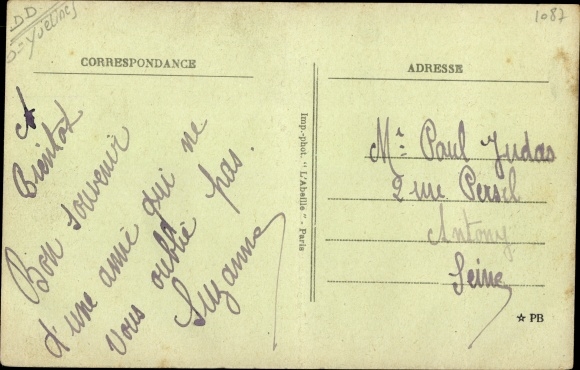 DD
Yvelines
1087
CORRESPONDANCE
A
Bientot
Bon souvenir
d'une amie qui ne
vous oublie pas.
Suzanne
Imp.-phot. "L'Abeille" - Paris
ADRESSE
Mr Paul Judas
2 rue Persil
Antony
Seine
☆ PB